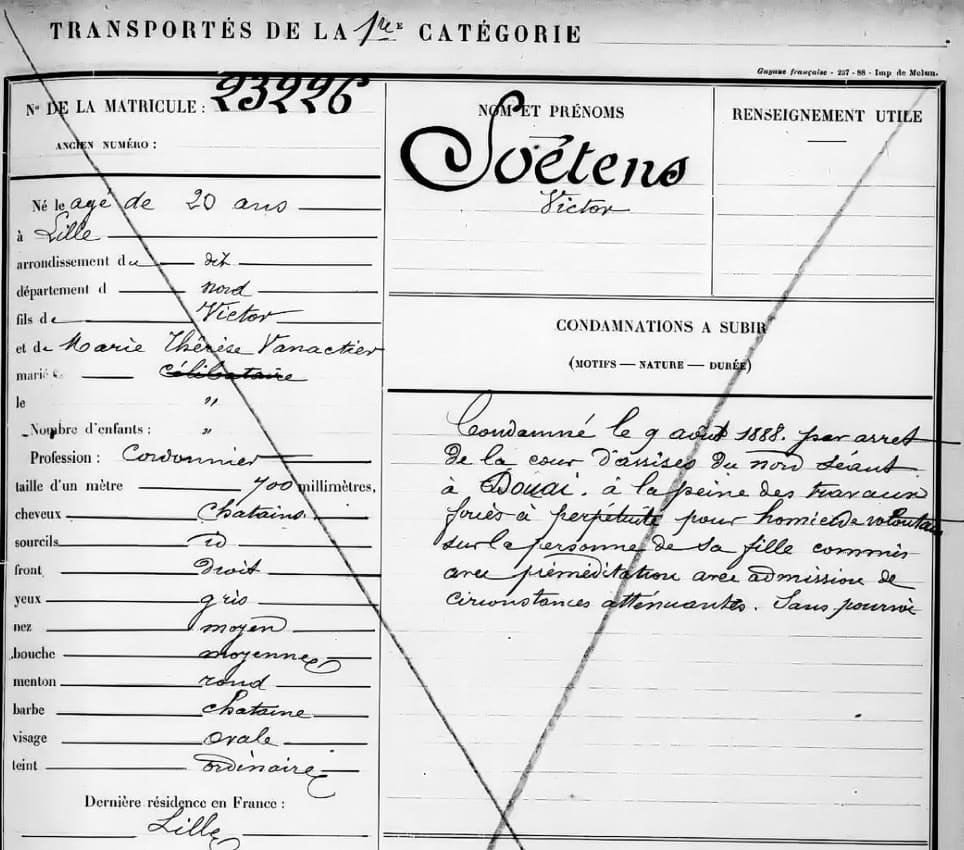 TRANSPORTÉS DE LA 1re CATÉGORIE
Guyane française - 237 - 88 - Imp de Melun.
No DE LA MATRICULE : 23226
ANCIEN NUMÉRO :
NOM ET PRÉNOMS
Soétens
Victor
RENSEIGNEMENT UTILE
Né le agé de 20 ans
à Lille
arrondissement du dit
département d nord
fils de Victor
et de Marie Thérèse Vanactier
marié célibataire
le "
Nombre d'enfants : "
Profession : Cordonnier
taille d'un mètre 700 millimètres,
cheveux chatains
sourcils id
front droit
yeux gris
nez moyen
bouche moyenne
menton rond
barbe chataine
visage ovale
teint ordinaire
Dernière résidence en France :
Lille
CONDAMNATIONS A SUBIR
(MOTIFS — NATURE — DURÉE)
Condamné le 9 août 1888. par arret
de la cour d'assises du nord séant
à Douai. à la peine des travaux
forcés à perpétuité pour homicide volontaire
sur la personne de sa fille commis
avec préméditation avec admission de
circonstances atténuantes. Sans pourvoi